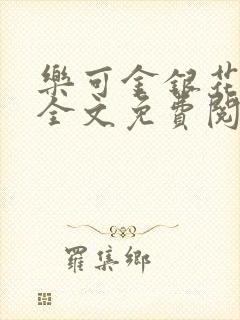 樂可金銀花
全文免費閱
羅集鄉